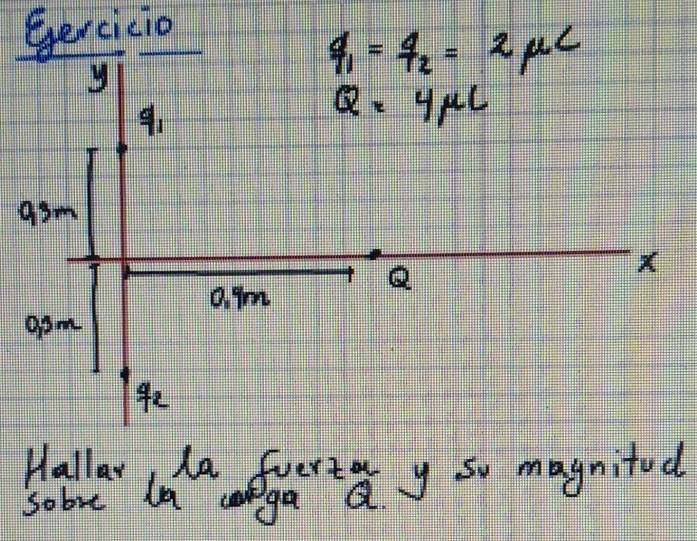 Ejercicio
y
q₁ = q₂ = 2 μC
Q = 4 μC
q₁
0,3m
x
Q
0.4m
0,3m
q₂
Hallar la fuerza y su magnitud
sobre la carga Q.